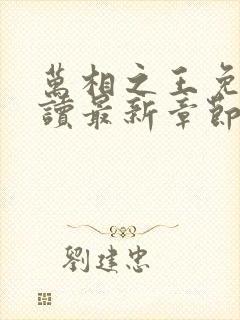 萬相之王免
讀最新章節
劉建忠